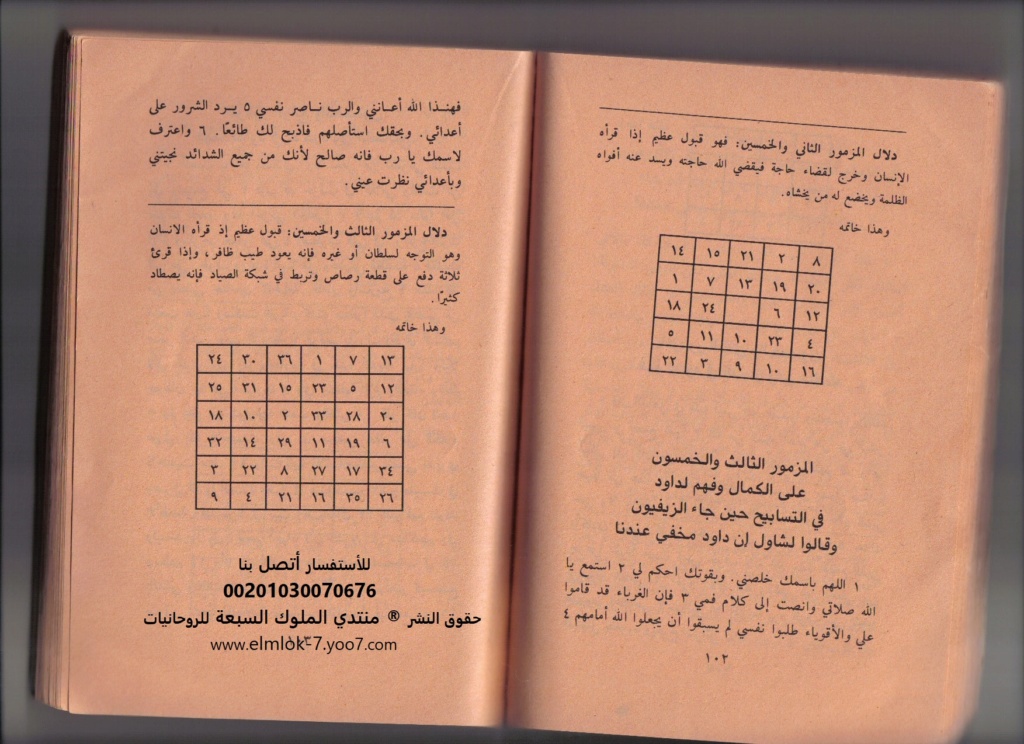 دلال المزمور الثاني والخمسين: فهو قبول عظيم إذا قرأه
الإنسان وخرج لقضاء حاجة فيقضي الله حاجته ويسد عنه أفواه
الظلمة ويخضع له من يخشاه.
وهذا خاتمه
٨ ٢ ٢١ ١٥ ١٤
٢٠ ١٩ ١٣ ٧ ١
١٢ ٦ ٢٤ ١٨
٤ ٢٣ ١٠ ١١ ٥
١٦ ١٠ ٩ ٣ ٢٢
المزمور الثالث والخمسون
على الكمال وفهم لداود
في التسابيح حين جاء الزيفيون
وقالوا لشاول إن داود مخفي عندنا
١ اللهم باسمك خلصني. وبقوتك احكم لي ٢ استمع يا
الله صلاتي وانصت إلى كلام فمي ٣ فإن الغرباء قد قاموا
علي والأقوياء طلبوا نفسي لم يسبقوا أن يجعلوا الله أمامهم ٤
١٠٢
فهنذا الله أعانني والرب ناصر نفسي ٥ يرد الشرور على
أعدائي. وبحقك استأصلهم فاذبح لك طائعًا. ٦ واعترف
لاسمك يا رب فانه صالح لأنك من جميع الشدائد نجيتني
وبأعدائي نظرت عيني.
دلال المزمور الثالث والخمسين: قبول عظيم إذ قرأه الانسان
وهو التوجه لسلطان أو غيره فإنه يعود طيب ظافر، وإذا قرئ
ثلاثة دفع على قطعة رصاص وتربط في شبكة الصياد فإنه يصطاد
كثيرًا.
وهذا خاتمه
١٣ ٧ ١ ٣٦ ٣٠ ٢٤
١٢ ٥ ٢٣ ١٥ ٣١ ٢٥
٢٠ ٢٨ ٣٣ ٢ ١٠ ١٨
٦ ١٩ ١١ ٢٩ ١٤ ٣٢
٣٤ ١٧ ٢٧ ٨ ٢٢ ٣
٢٦ ٣٥ ١٦ ٢١ ٤ ٩
للأستفسار أتصل بنا
00201030070676
حقوق النشر ® منتدي الملوك السبعة للروحانيات
www.elmlok-7.yoo7.com